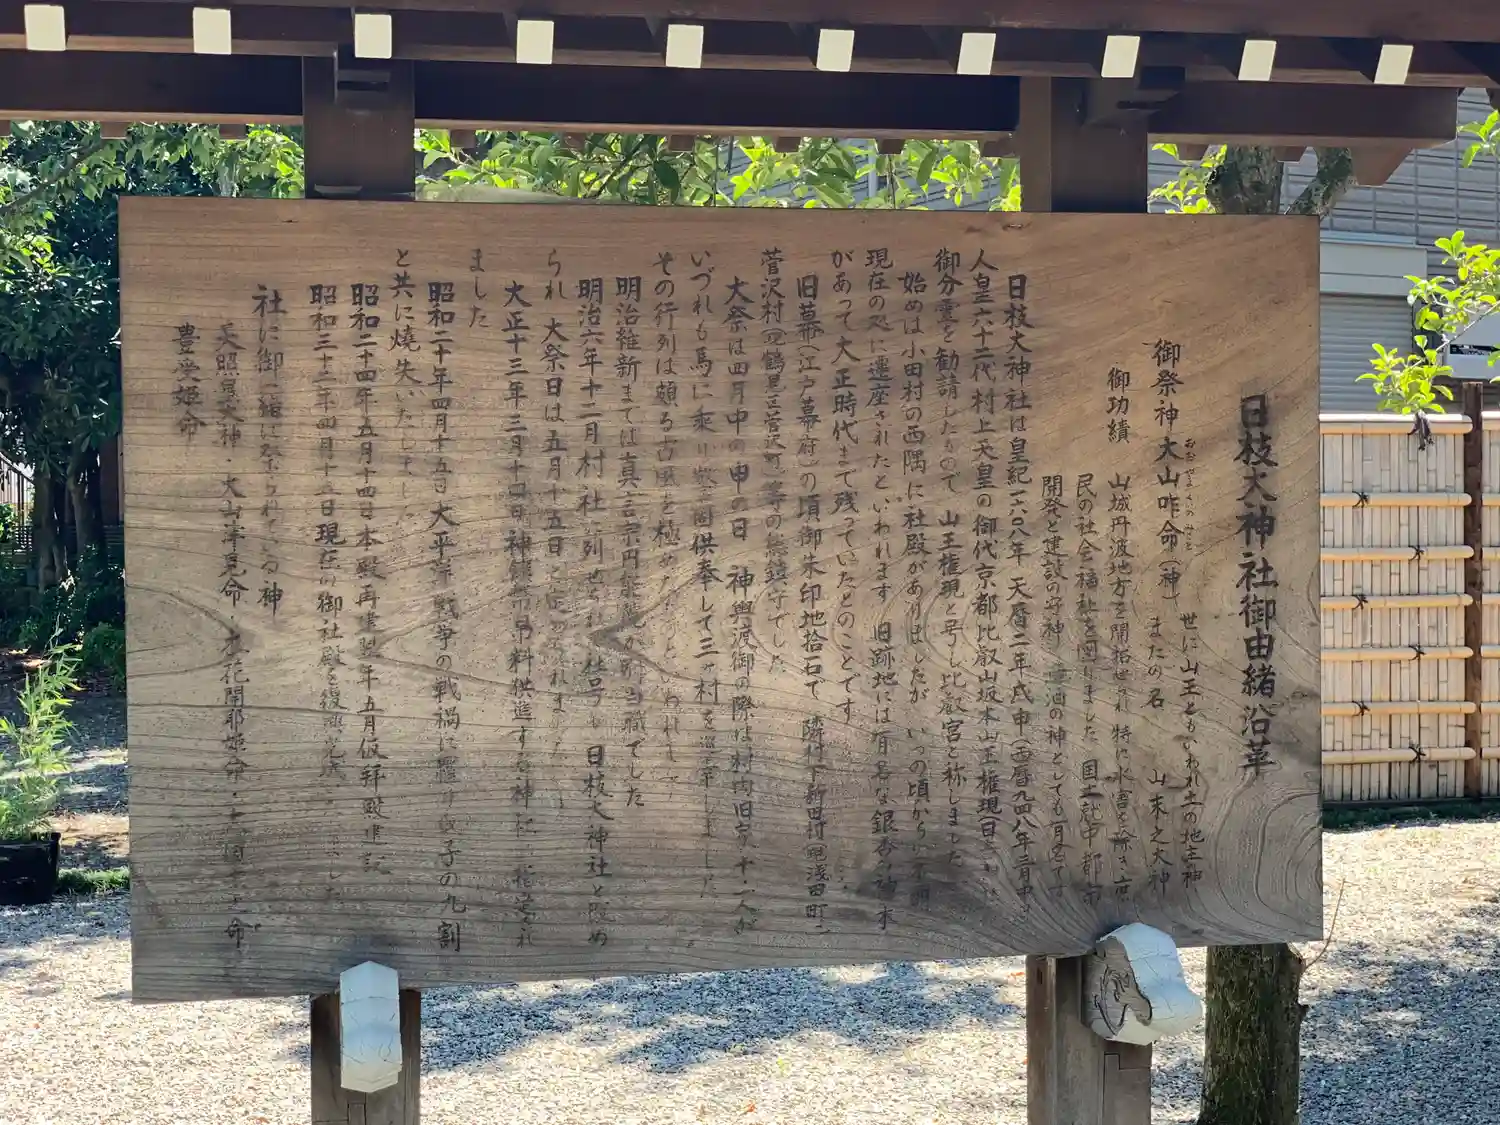 日枝大神社御由緒沿革
御祭神 大山咋命(神) 世に山王ともいわれ土の地主神
おおやまくいのみこと
またの名 山末之大神
御功績 山城丹波地方を開拓され 特に水害を除き
民の社会福祉を図りました 国土就中都市
開発と建設の守神 の神としても有名です
日枝大神社は皇紀一六〇八年 天暦二年戊申(西暦九四八年)二月中
人皇六十二代村上天皇の御代京都比叡山坂本山王権現(日
御分霊を勧請したもので 山王権現と号し比叡宮と称しました
始めは小田村の西隅に社殿がありましたが いつの頃からか不明
現在の処に遷座されたといわれます 旧跡地には有名な銀杏の神木
があって大正時代まで残っていたとのことです
旧幕(江戸幕府)の頃御朱印地拾石で 隣村下新田村(現浅田町)
菅沢村(現鶴見区菅沢町)等の総鎮守でした
大祭は四月中の申の日 神輿渡御の際は村内旧家十二人が
いづれも馬に乗り 供奉して三ヶ村を巡幸しました
その行列は頗る古風を極めたものといわれます
明治維新までは真言宗円能院の別当職でした
明治六年十二月村社に列せられ 社号も日枝大神社と改め
られ 大祭日は五月十五日と定められました
大正十三年三月十四日神饌幣帛料供進する神社に指定され
ました
昭和二十年四月十五日大平洋戦争の戦禍に罹り氏子の九割
と共に燒失いたしました
昭和二十四年五月十四日本殿再建翌年五月仮拝殿建設
昭和三十二年四月十五日現在の御社殿を復興完成 ました
社に御一緒に祭られている神
天照皇大神・大山津見命・木花開耶姫命・ 命
豊受姫命